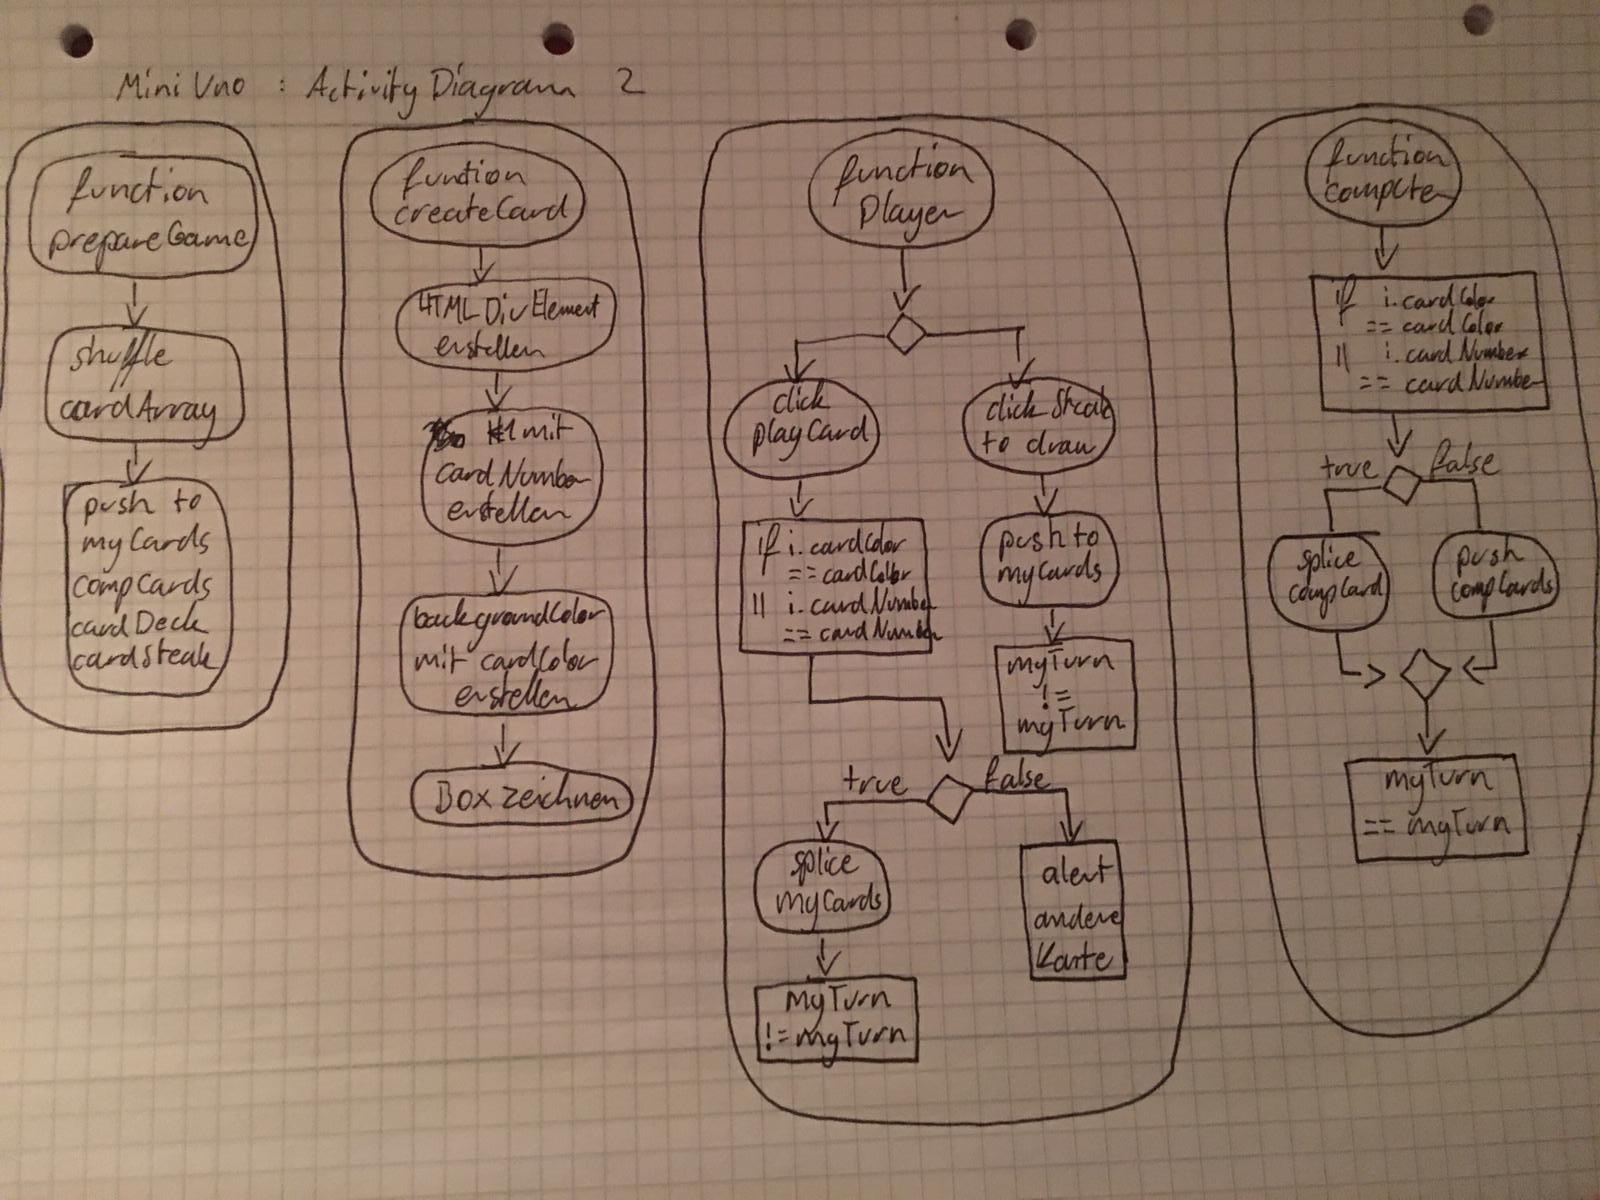 Mini Uno : Activity Diagram 2
function
prepareGame
shuffle
cardArray
push to
myCards
compCards
cardDeck
cardSteak
function
createCard
HTMLDivElement
erstellen
H1 mit
cardNumber
erstellen
backgroundColor
mit cardColor
erstellen
Box zeichnen
function
player
click
playCard
if i.cardColor
== cardColor
|| i.cardNumber
== cardNumber
click Steak
to draw
push to
myCards
myTurn
!=
myTurn
true
false
splice
myCards
myTurn
!= myTurn
alert
andere
Karte
function
computer
if i.cardColor
== cardColor
|| i.cardNumber
== cardNumber
true
false
splice
compCard
push
compCards
myTurn
== myTurn